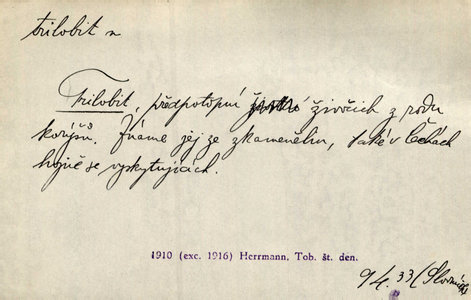 trilobit n
Trilobit, předpotopní živočich z rodu
korýšů. Známe jej ze zkamenělin, také v Čechách
hojně se vyskytujících.
1910 (exc. 1916) Herrmann, Tob. št. den.
94.33 (Slovníček